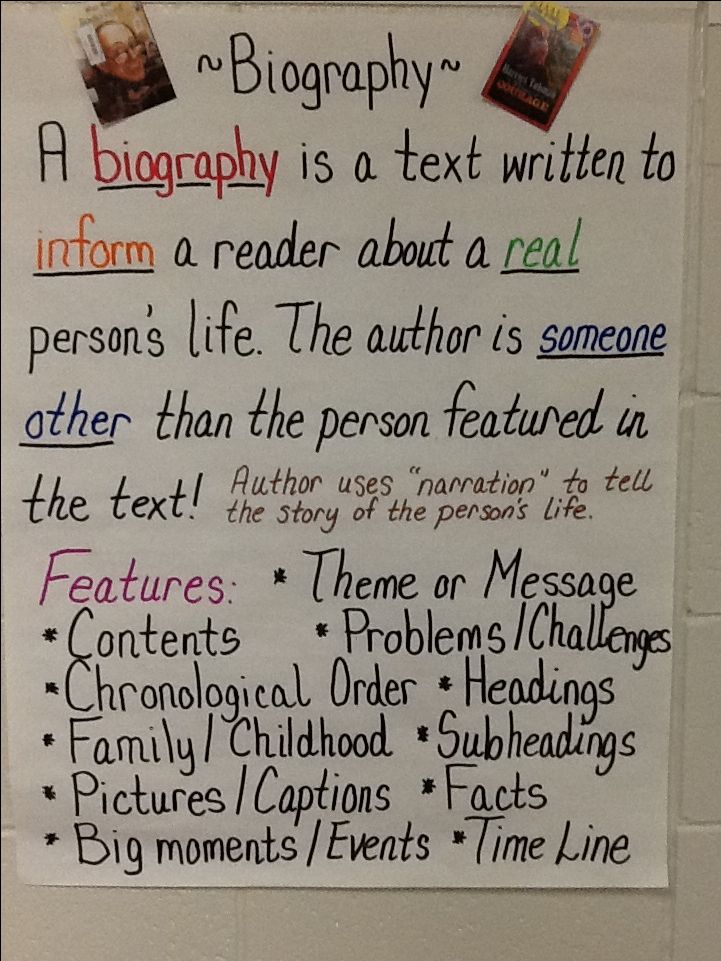 ~Biography~
Harriet Tubman
COURAGE
A biography is a text written to
inform a reader about a real
person's life. The author is someone
other than the person featured in
the text! Author uses "narration" to tell
the story of the person's life.
Features: * Theme or Message
* Contents * Problems/Challenges
* Chronological Order * Headings
* Family/Childhood * Subheadings
* Pictures/Captions * Facts
* Big moments/Events * Time Line